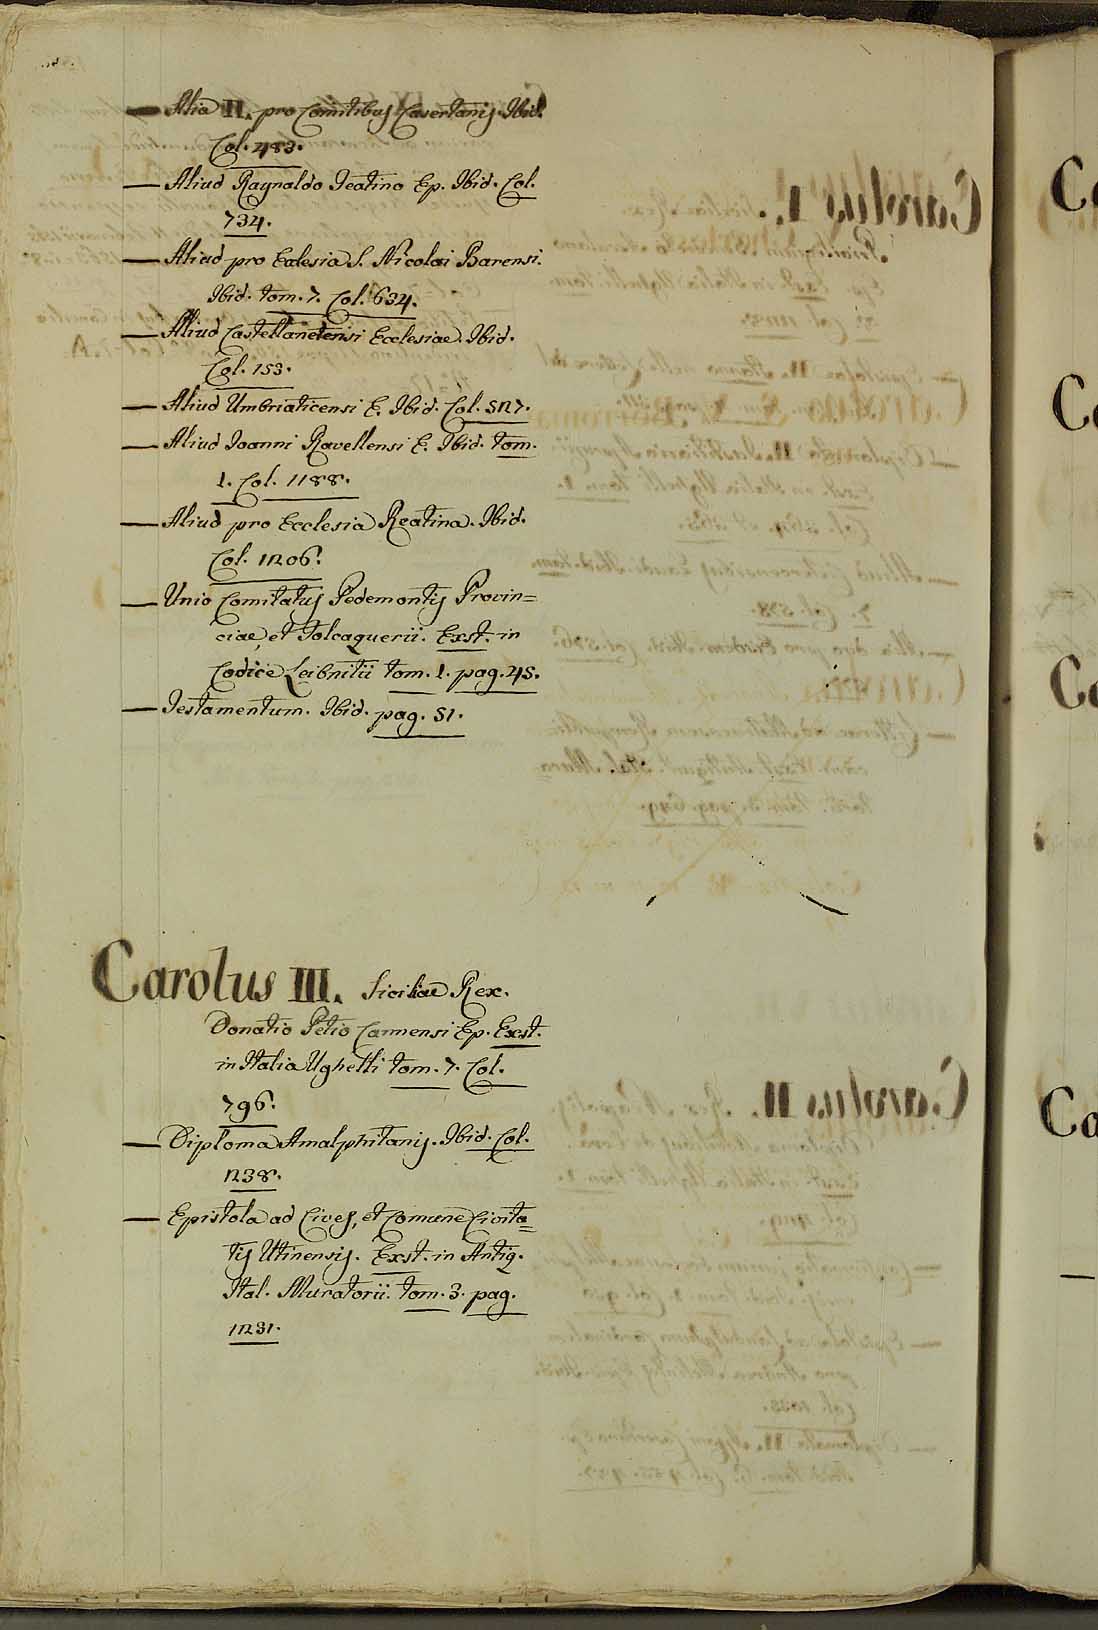 — Alia II. pro Comitibus Casertanis. Ibid.
Col. 483.
— Aliud Raynaldo Teatino Ep. Ibid. Col.
734.
— Aliud pro Ecclesia S. Nicolai Barensi.
Ibid. tom. 7. Col. 634.
— Aliud Castellanetensi Ecclesiae. Ibid.
Col. 153.
— Aliud Umbriaticensi E. Ibid. Col. 527.
— Aliud Ioanni Ravellensi E. Ibid. tom.
1. Col. 1188.
— Aliud pro Ecclesia Reatina. Ibid.
Col. 1206.
— Unio Comitatus Pedemontis Provin=
ciae, et Folcaquerii. Exst. in
Codice Leibnitii tom. 1. pag. 45.
— Testamentum. Ibid. pag. 51.
Carolus III. Siciliae Rex.
Donatio Petio Cannensi Ep. Exst.
in Italia Ughelli tom. 7. Col.
796.
— Diploma Amalphitanis. Ibid. Col.
1238.
— Epistola ad Cives, et Comune Civita=
tis Utinensis. Exst. in Antiq.
Ital. Muratorii. tom. 3. pag.
1231.